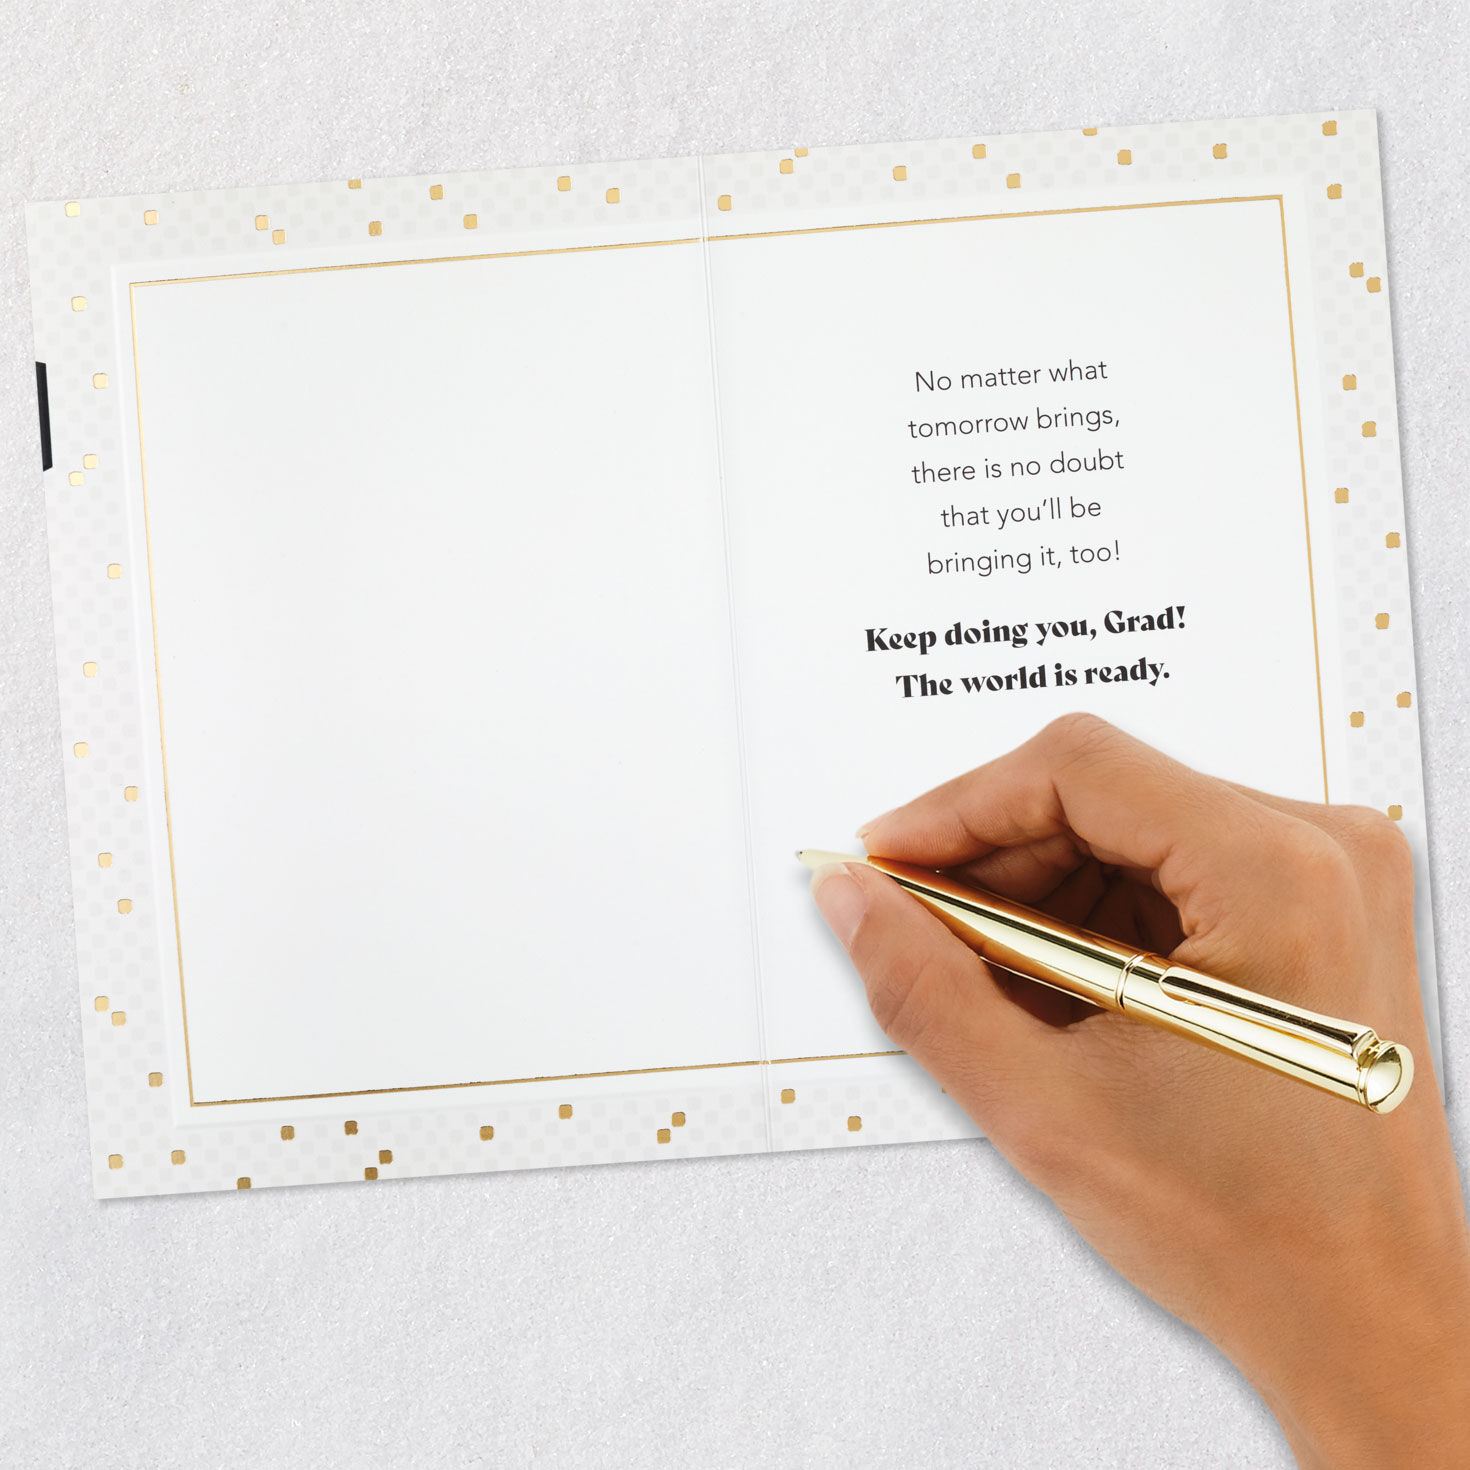 No matter what
tomorrow brings,
there is no doubt
that you'll be
bringing it, too!
Keep doing you, Grad!
The world is ready.